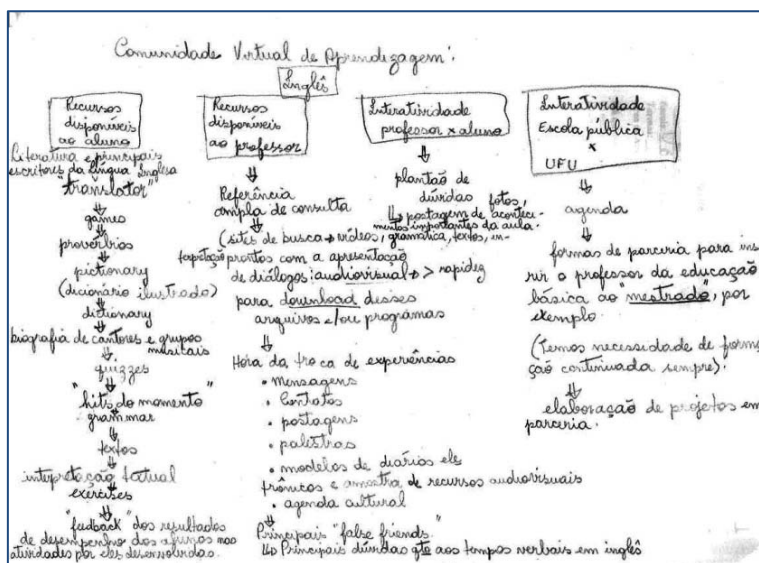 Comunidade Virtual de Aprendizagem:
Inglês
Recursos
disponíveis
ao aluno
Literatura e principais
escritores da língua inglesa
"translator"
games
provérbios
pictionary
(dicionário ilustrado)
dictionary
biografia de cantores e grupos
musicais
quizzes
"hits do momento"
grammar
textos
interpretação textual
exercises
"feedback" dos resultados
de desempenho dos alunos nas
atividades por eles desenvolvidas.
Recursos
disponíveis
ao professor
Referência
ampla de consulta
(sites de busca → vídeos, gramática, textos, in-
terpretação prontos com a apresentação
de diálogos: audiovisual → > rapidez
para download desses
arquivos e/ou programas
Hora da troca de experiências
• mensagens
• contatos
• postagens
• palestras
• modelos de diários ele
trônicos e amostra de recursos audiovisuais
• agenda cultural
Principais "false friends"
↳ Principais dúvidas qto aos tempos verbais em inglês
Interatividade
professor x aluno
plantão de
dúvidas
↳ postagem de fotos, aconteci-
mentos importantes da aula.
Interatividade
Escola pública
x
UFU
agenda
formas de parceria para inse
rir o professor da educação
básica ao "mestrado", por
exemplo.
(Temos necessidade de forma
ção continuada sempre).
elaboração de projetos em
parceria.